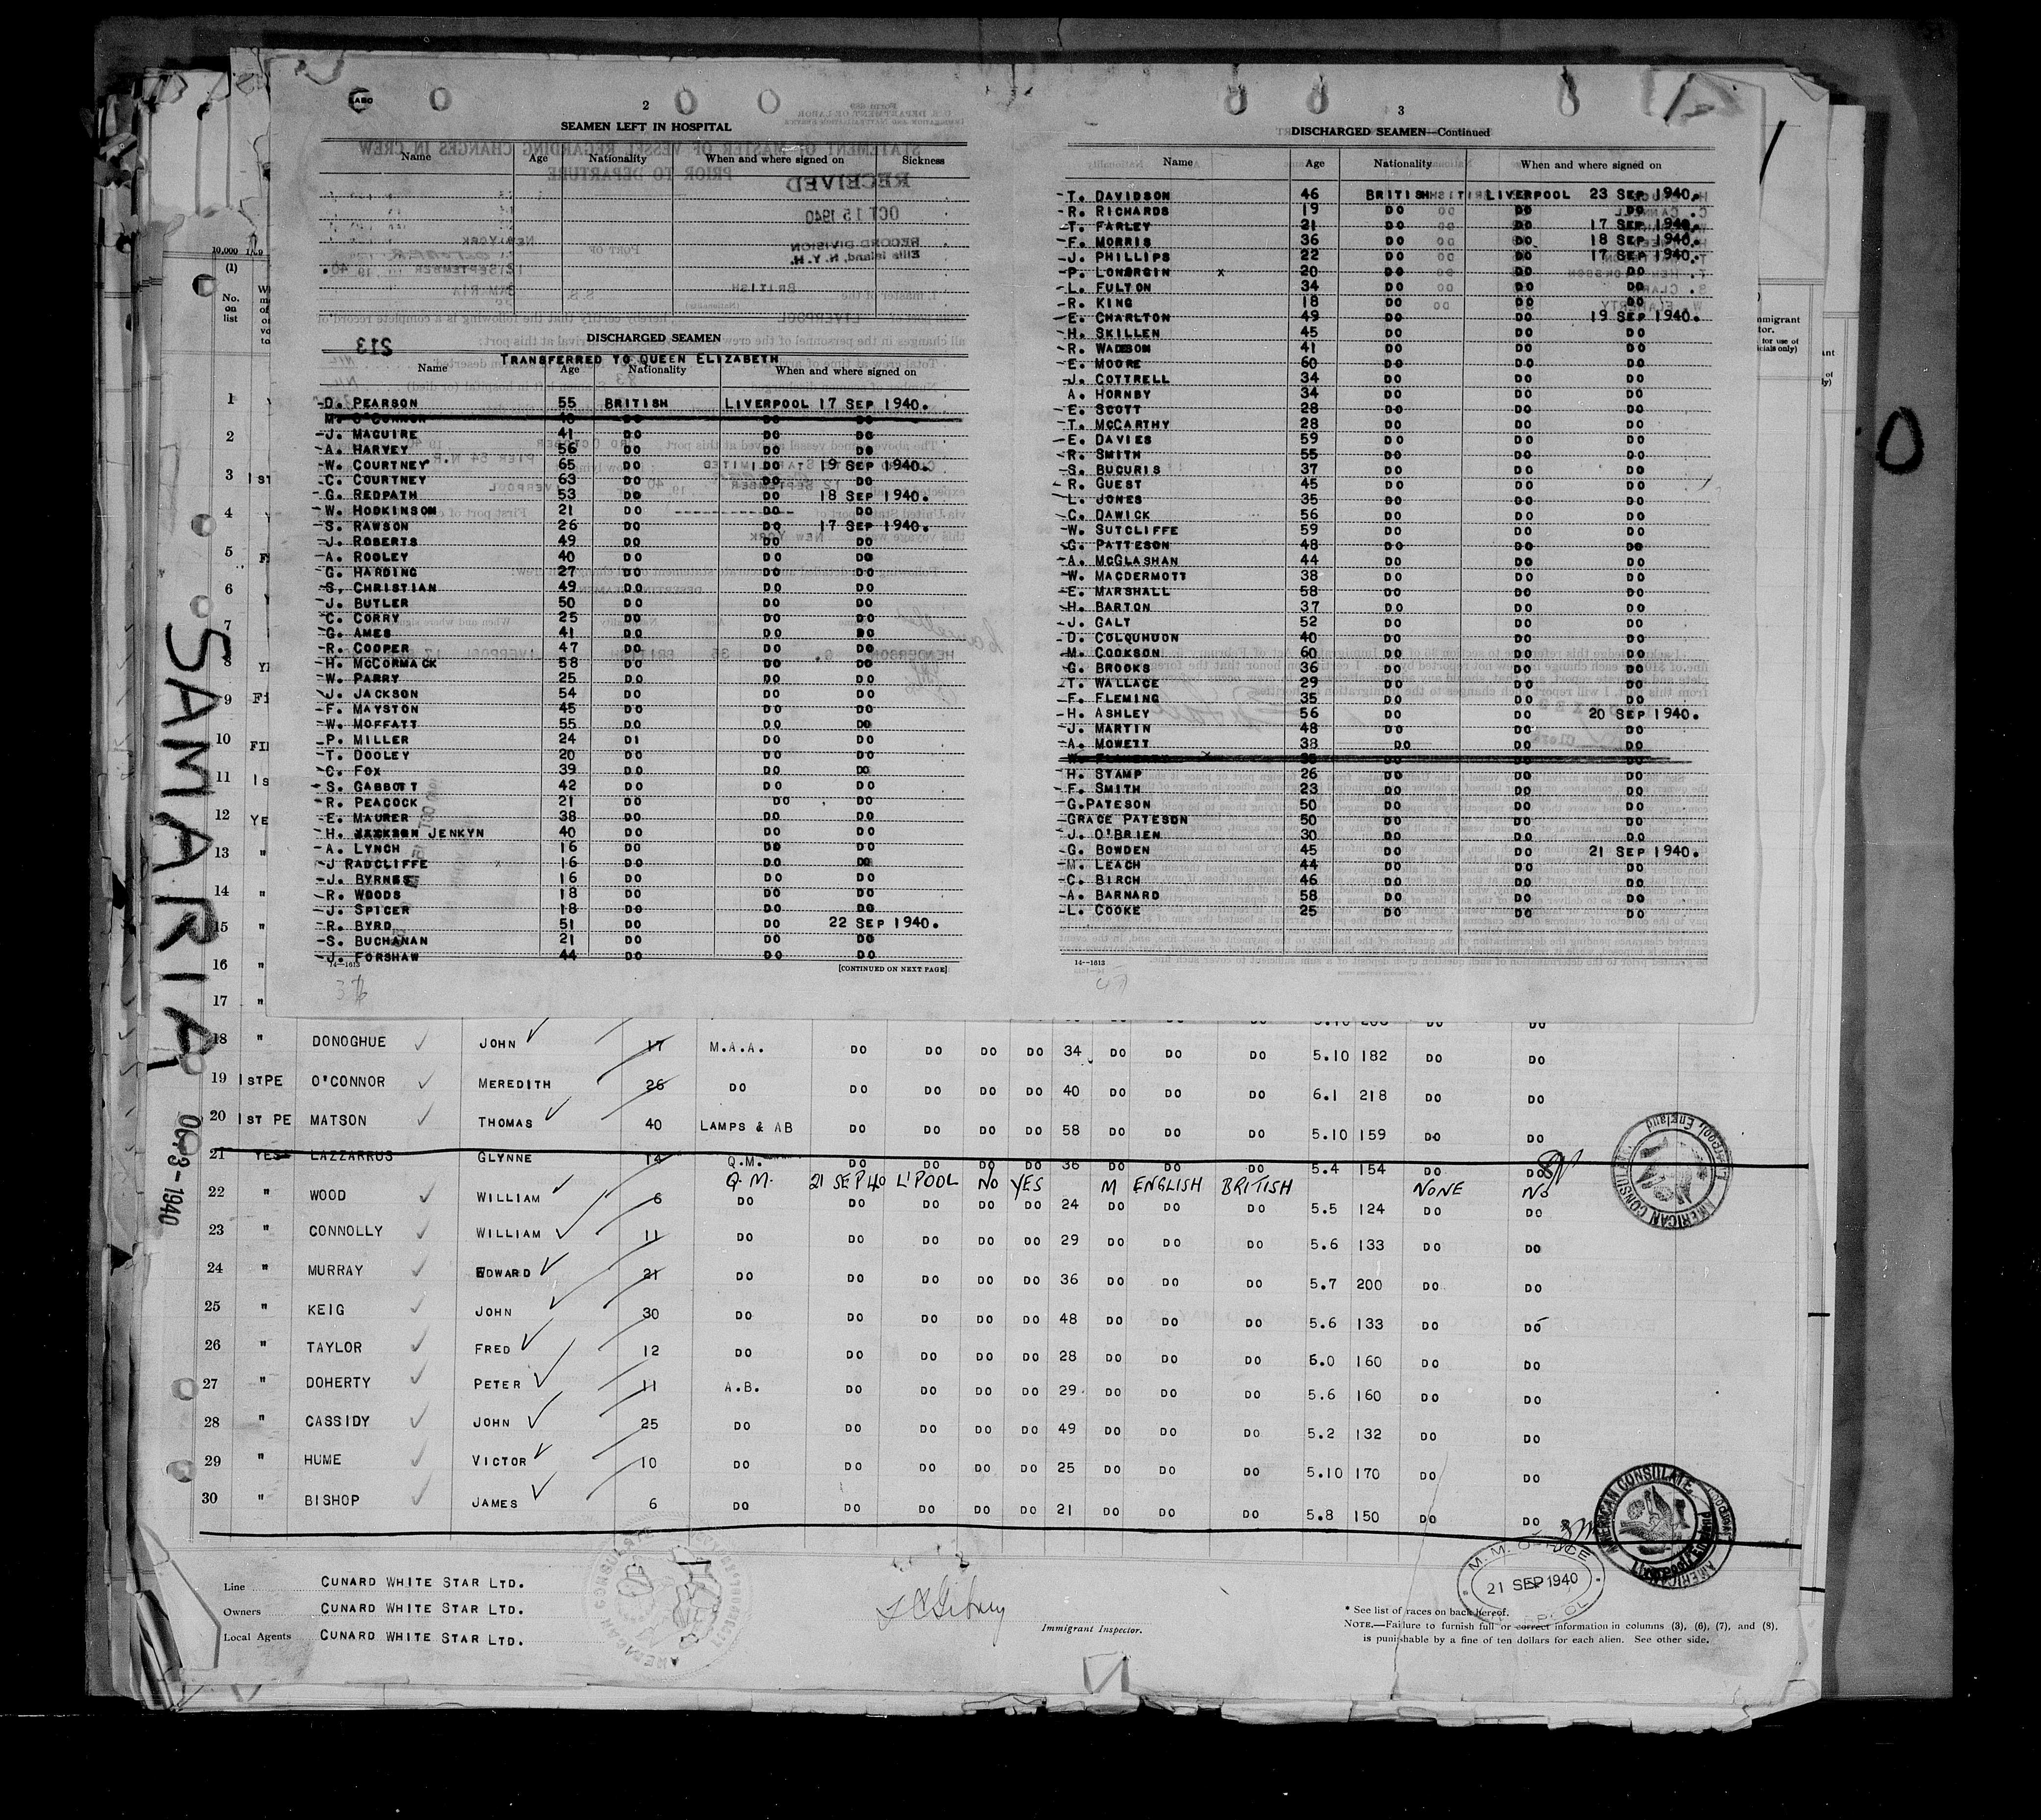 2
SEAMEN LEFT IN HOSPITAL
Name Age Nationality When and where signed on Sickness
DISCHARGED SEAMEN
TRANSFERRED TO QUEEN ELIZABETH
Name Age Nationality When and where signed on
-D. PEARSON 55 BRITISH LIVERPOOL 17 SEP 1940.
M. O'CONNOR 40 DO DO DO
-J. MAGUIRE 41 DO DO DO
-A. HARVEY 56 DO DO DO
-W. COURTNEY 65 DO DO 19 SEP 1940.
-C. COURTNEY 63 DO DO DO
-G. REDPATH 53 DO DO 18 SEP 1940.
-W. HODKINSON 21 DO DO DO
-S. RAWSON 26 DO DO 17 SEP 1940.
-J. ROBERTS 49 DO DO DO
-A. ROOLEY 40 DO DO DO
-G. HARDING 27 DO DO DO
-S. CHRISTIAN 49 DO DO DO
-J. BUTLER 50 DO DO DO
-C. CORRY 25 DO DO DO
-G. AMES 41 DO DO DO
-R. COOPER 47 DO DO DO
-H. MCCORMACK 58 DO DO DO
-W. PARRY 25 DO DO DO
-J. JACKSON 54 DO DO DO
-F. MAYSTON 45 DO DO DO
-W. MOFFATT 55 DO DO DO
-P. MILLER 24 DI DO DO
-T. DOOLEY 20 DO DO DO
-C. FOX 39 DO DO DO
-S. GABBOTT 42 DO DO DO
-R. PEACOCK 21 DO DO DO
-E. MAURER 38 DO DO DO
-H. JACKSON JENKYN 40 DO DO DO
-A. LYNCH 16 DO DO DO
-J RADCLIFFE 16 DO DO DO
-J. BYRNES 16 DO DO DO
-R. WOODS 18 DO DO DO
-J. SPICER 18 DO DO DO
-R. BYRD 51 DO DO 22 SEP 1940.
-S. BUCHANAN 21 DO DO DO
-J. FORSHAW 44 DO DO DO
14—1613 [CONTINUED ON NEXT PAGE]
3
DISCHARGED SEAMEN—Continued
Name Age Nationality When and where signed on
-T. DAVIDSON 46 BRITISH LIVERPOOL 23 SEP 1940.
-R. RICHARDS 19 DO DO DO
-T. FARLEY 21 DO DO 17 SEP 1940.
-F. MORRIS 36 DO DO 18 SEP 1940.
-J. PHILLIPS 22 DO DO 17 SEP 1940.
-P. LONERGIN x 20 DO DO DO
-L. FULTON 34 DO DO DO
-R. KING 18 DO DO DO
-E. CHARLTON 49 DO DO 19 SEP 1940.
-H. SKILLEN 45 DO DO DO
-R. WADSON 41 DO DO DO
-E. MOORE 60 DO DO DO
-J. COTTRELL 34 DO DO DO
A. HORNBY 34 DO DO DO
-E. SCOTT 28 DO DO DO
-T. MCCARTHY 28 DO DO DO
-E. DAVIES 59 DO DO DO
-R. SMITH 55 DO DO DO
-S. BUCURIS 37 DO DO DO
-R. GUEST 45 DO DO DO
-L. JONES 35 DO DO DO
-C. DAWICK 56 DO DO DO
-W. SUTCLIFFE 59 DO DO DO
-G. PATTESON 48 DO DO DO
-A. MCGLASHAN 44 DO DO DO
-W. MACDERMOTT 38 DO DO DO
-E. MARSHALL 58 DO DO DO
-H. BARTON 37 DO DO DO
-J. GALT 52 DO DO DO
-D. COLQUHOUN 40 DO DO DO
-M. COOKSON 60 DO DO DO
-G. BROOKS 36 DO DO DO
-T. WALLACE 29 DO DO DO
-F. FLEMING 35 DO DO DO
-H. ASHLEY 56 DO DO 20 SEP 1940.
-J. MARTIN 48 DO DO DO
-A. MOWETT 38 DO DO DO
W. FLAHERTY x 35 DO DO DO
-H. STAMP 26 DO DO DO
-F. SMITH 23 DO DO DO
-G.PATESON 50 DO DO DO
-GRACE PATESON 50 DO DO DO
-J. O'BRIEN 30 DO DO DO
-G. BOWDEN 45 DO DO 21 SEP 1940.
-M. LEACH 44 DO DO DO
-C. BIRCH 46 DO DO DO
-A. BARNARD 58 DO DO DO
-L. COOKE 25 DO DO DO
14—1613
SAMARIA
OCT 3-1940
(1)
No. on list
1
2
3 1ST
4
5
6
7
8
9
10
11
12
13 "
14 "
15 "
16 "
17 "
18 " DONOGHUE JOHN 17 M.A.A. DO DO DO DO 34 DO DO DO 5.10 182 DO DO
19 1STPE O'CONNOR MEREDITH 26 DO DO DO DO DO 40 DO DO DO 6.1 218 DO DO
20 1ST PE MATSON THOMAS 40 LAMPS & AB DO DO DO DO 58 DO DO DO 5.10 159 DO DO
21 YES LAZZARRUS GLYNNE 14 Q.M. DO DO DO DO 36 DO DO DO 5.4 154 DO DO
Q.M. 21 SEP 40 L'POOL NO YES M ENGLISH BRITISH NONE NO
22 " WOOD WILLIAM 6 DO DO DO DO DO 24 DO DO DO 5.5 124 DO DO
23 " CONNOLLY WILLIAM 11 DO DO DO DO DO 29 DO DO DO 5.6 133 DO DO
24 " MURRAY EDWARD 21 DO DO DO DO DO 36 DO DO DO 5.7 200 DO DO
25 " KEIG JOHN 30 DO DO DO DO DO 48 DO DO DO 5.6 133 DO DO
26 " TAYLOR FRED 12 DO DO DO DO DO 28 DO DO DO 6.0 160 DO DO
27 " DOHERTY PETER 11 A.B. DO DO DO DO 29 DO DO DO 5.6 160 DO DO
28 " CASSIDY JOHN 25 DO DO DO DO DO 49 DO DO DO 5.2 132 DO DO
29 " HUME VICTOR 10 DO DO DO DO DO 25 DO DO DO 5.10 170 DO DO
30 " BISHOP JAMES 6 DO DO DO DO DO 21 DO DO DO 5.8 150 DO DO
AMERICAN CONSULATE
M. M. OFFICE
21 SEP 1940
Line CUNARD WHITE STAR LTD.
Owners CUNARD WHITE STAR LTD.
Local Agents CUNARD WHITE STAR LTD.
Immigrant Inspector.
* See list of races on back hereof.
NOTE.—Failure to furnish full or correct information in columns (3), (6), (7), and (8),
is punishable by a fine of ten dollars for each alien. See other side.